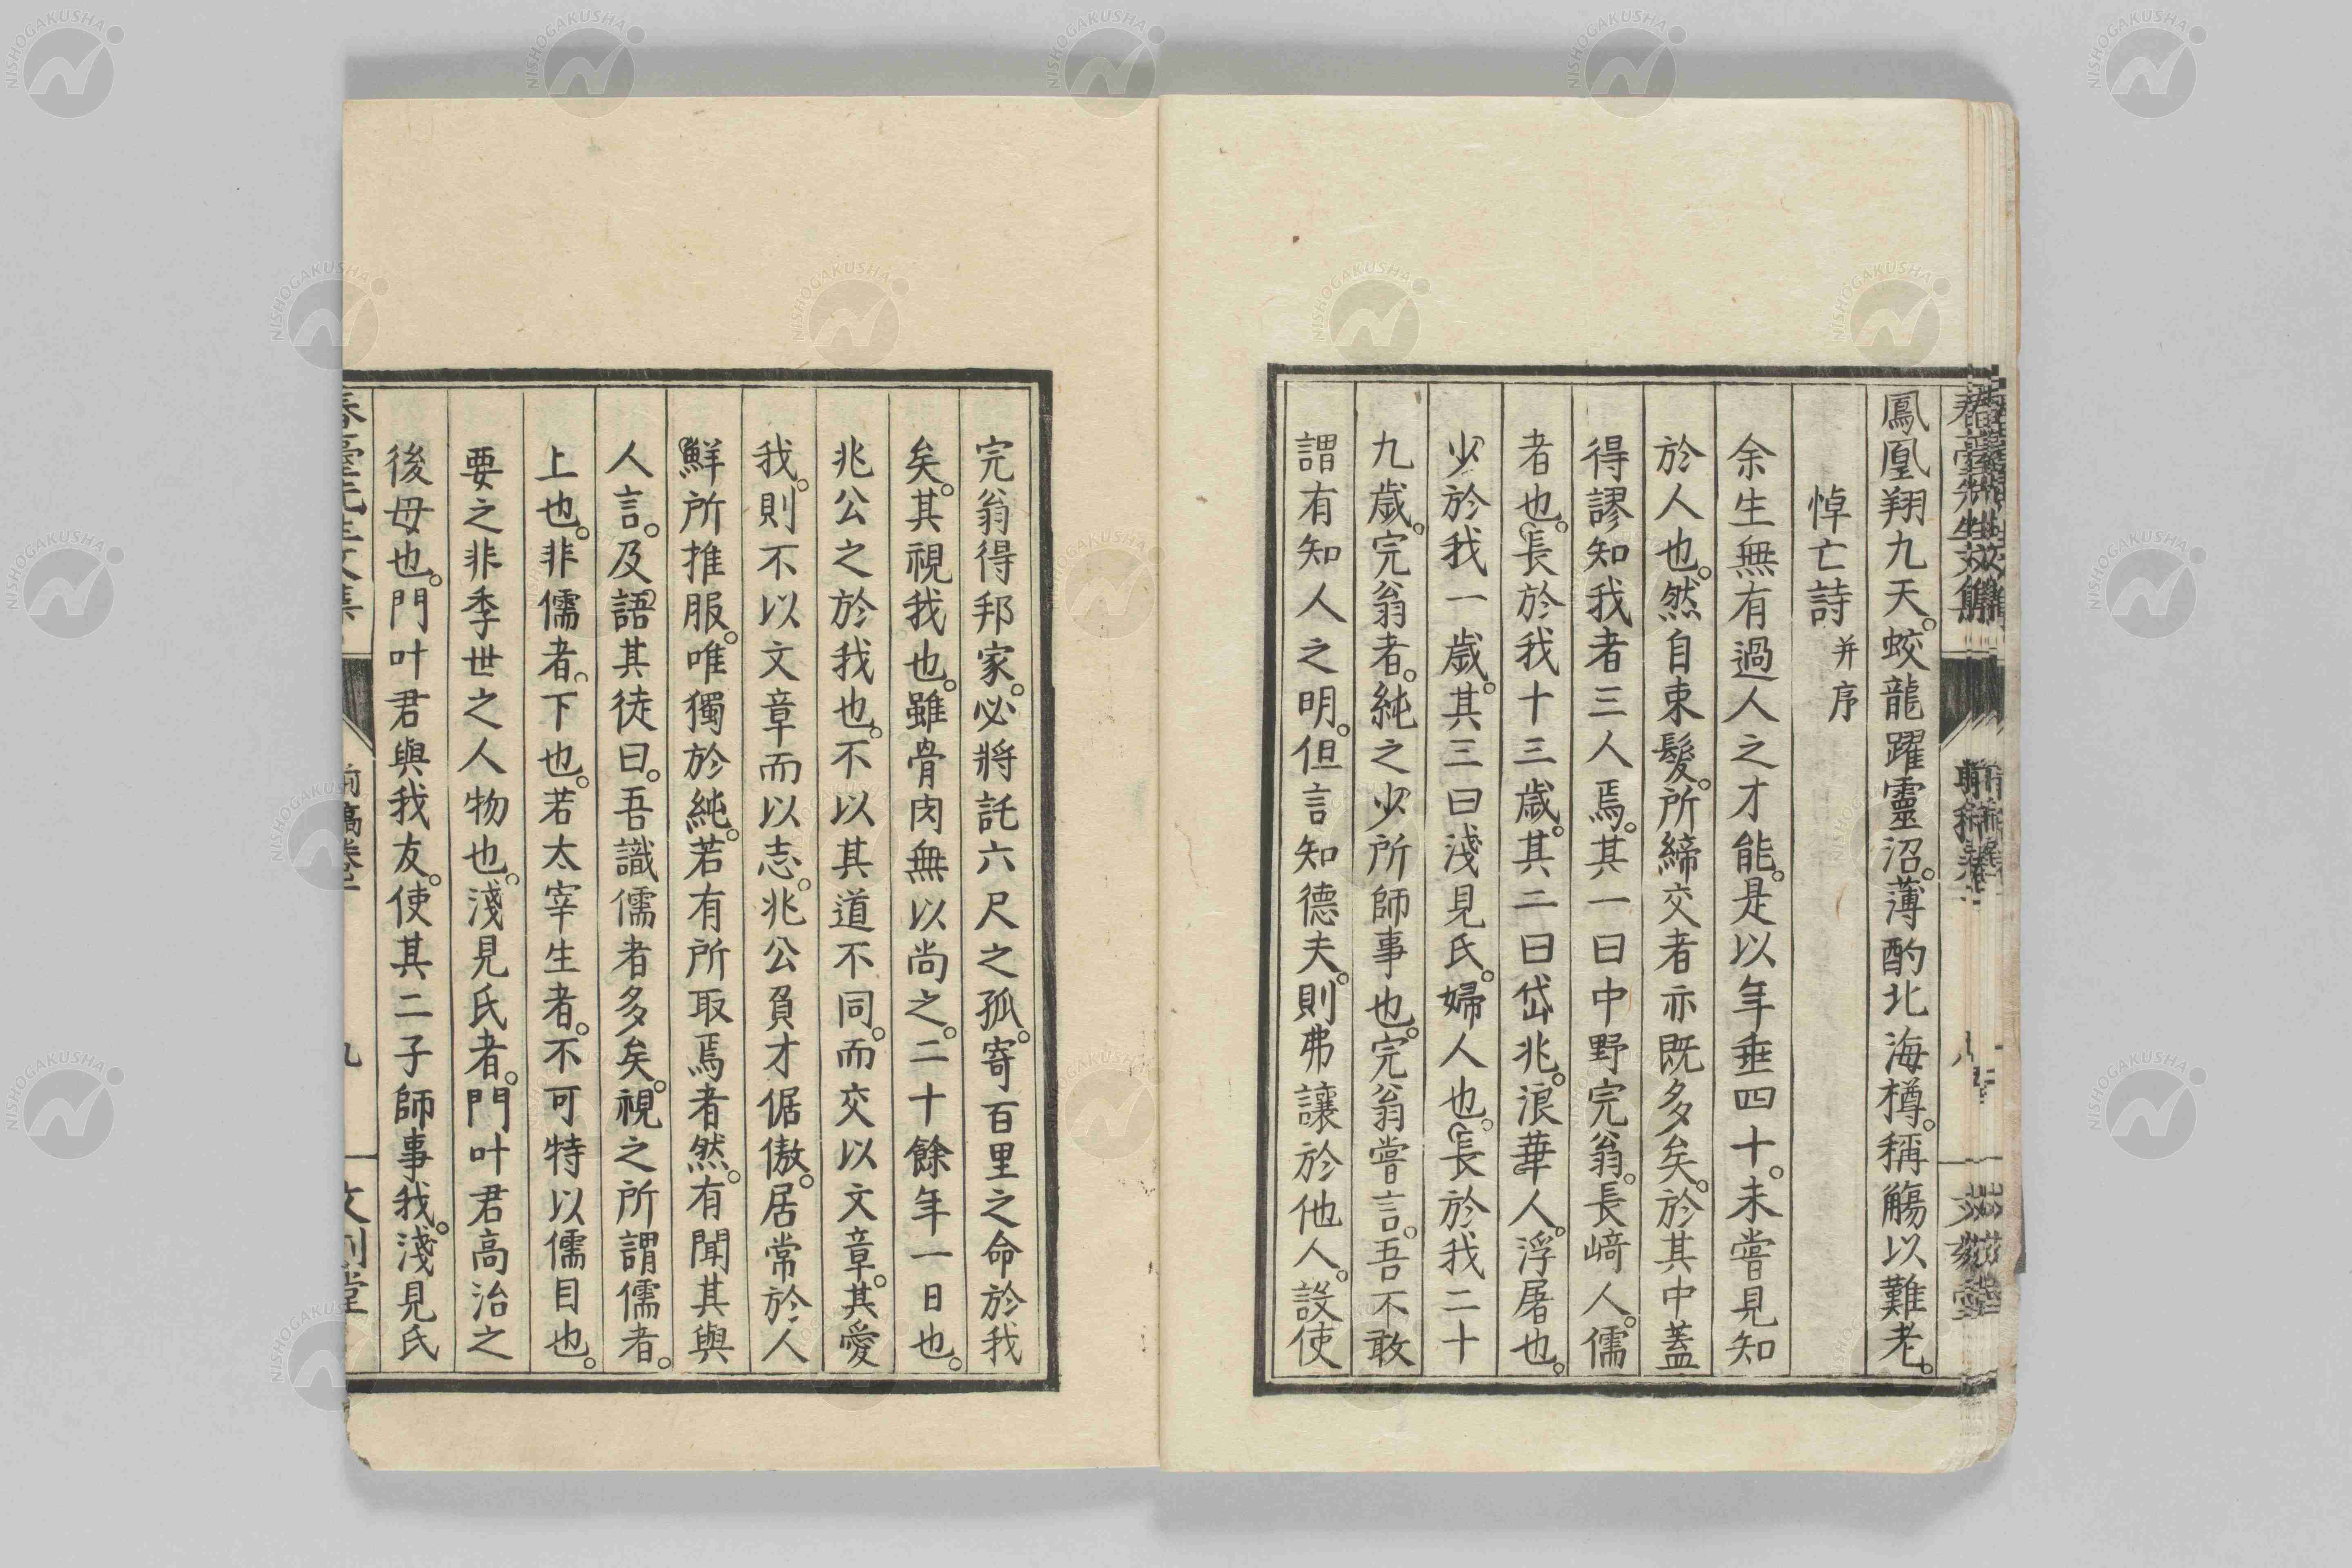 鳳凰翔九天。蛟龍躍靈沼。薄酌北海樽。稱觴以難老。
悼亡詩 并序
余生無有過人之才能。是以年垂四十。未嘗見知
於人也。然自束髮。所締交者亦既多矣。於其中蓋
得謬知我者三人焉。其一曰中野完翁。長﨑人。儒
者也。長於我十三歲。其二曰岱兆。浪華人。浮屠也。
少於我一歲。其三曰淺見氏。婦人也。長於我二十
九歲。完翁者。純之少所師事也。完翁嘗言。吾不敢
謂有知人之明。但言知德夫。則弗讓於他人。設使
完翁得邦家。必將託六尺之孤。寄百里之命於我
矣。其視我也。雖骨肉無以尚之。二十餘年一日也。
兆公之於我也。不以其道不同。而交以文章。其愛
我。則不以文章而以志。兆公負才倨傲。居常於人
鮮所推服。唯獨於純。若有所取焉者然。有聞其與
人言。及語其徒曰。吾識儒者多矣。視之所謂儒者。
上也。非儒者。下也。若太宰生者。不可特以儒目也。
要之非季世之人物也。淺見氏者。門叶君高治之
後母也。門叶君與我友。使其二子師事我。淺見氏
春臺先生文集
前稿卷二
九
NISHOGAKUSHA